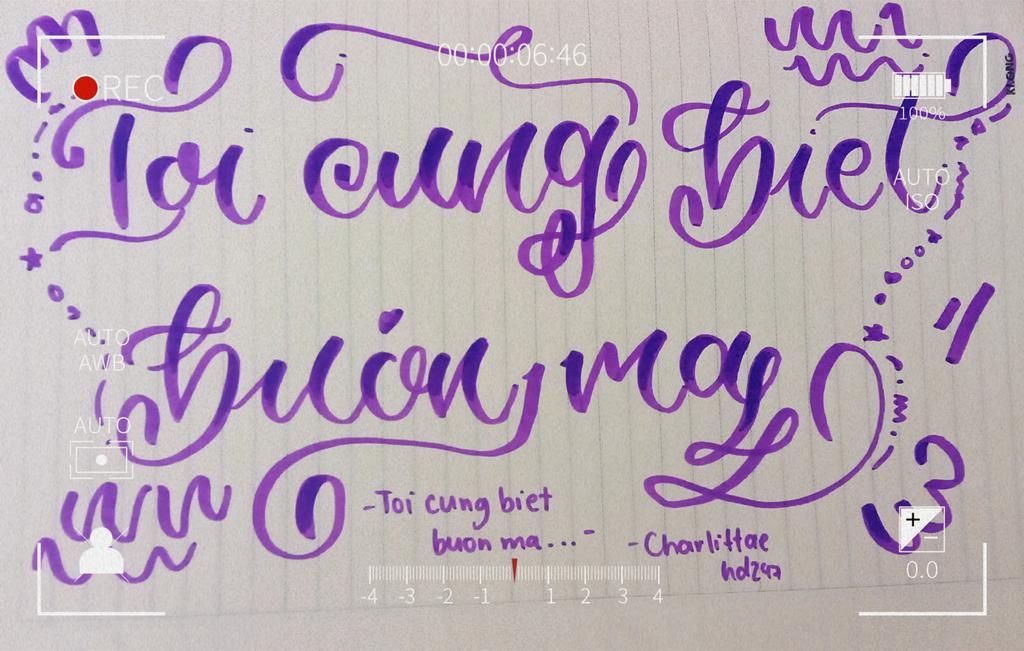 00:00:06:46
REC
100%
Toi cung biet
AUTO
ISO
buon ma
AUTO
AWB
AUTO
-Toi cung biet
buon ma...-
-Charlittae
hd247
-4 -3 -2 -1 1 2 3 4
0.0